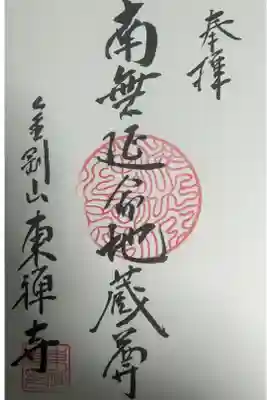 奉拝
南無延命地蔵尊
金剛山東禅寺